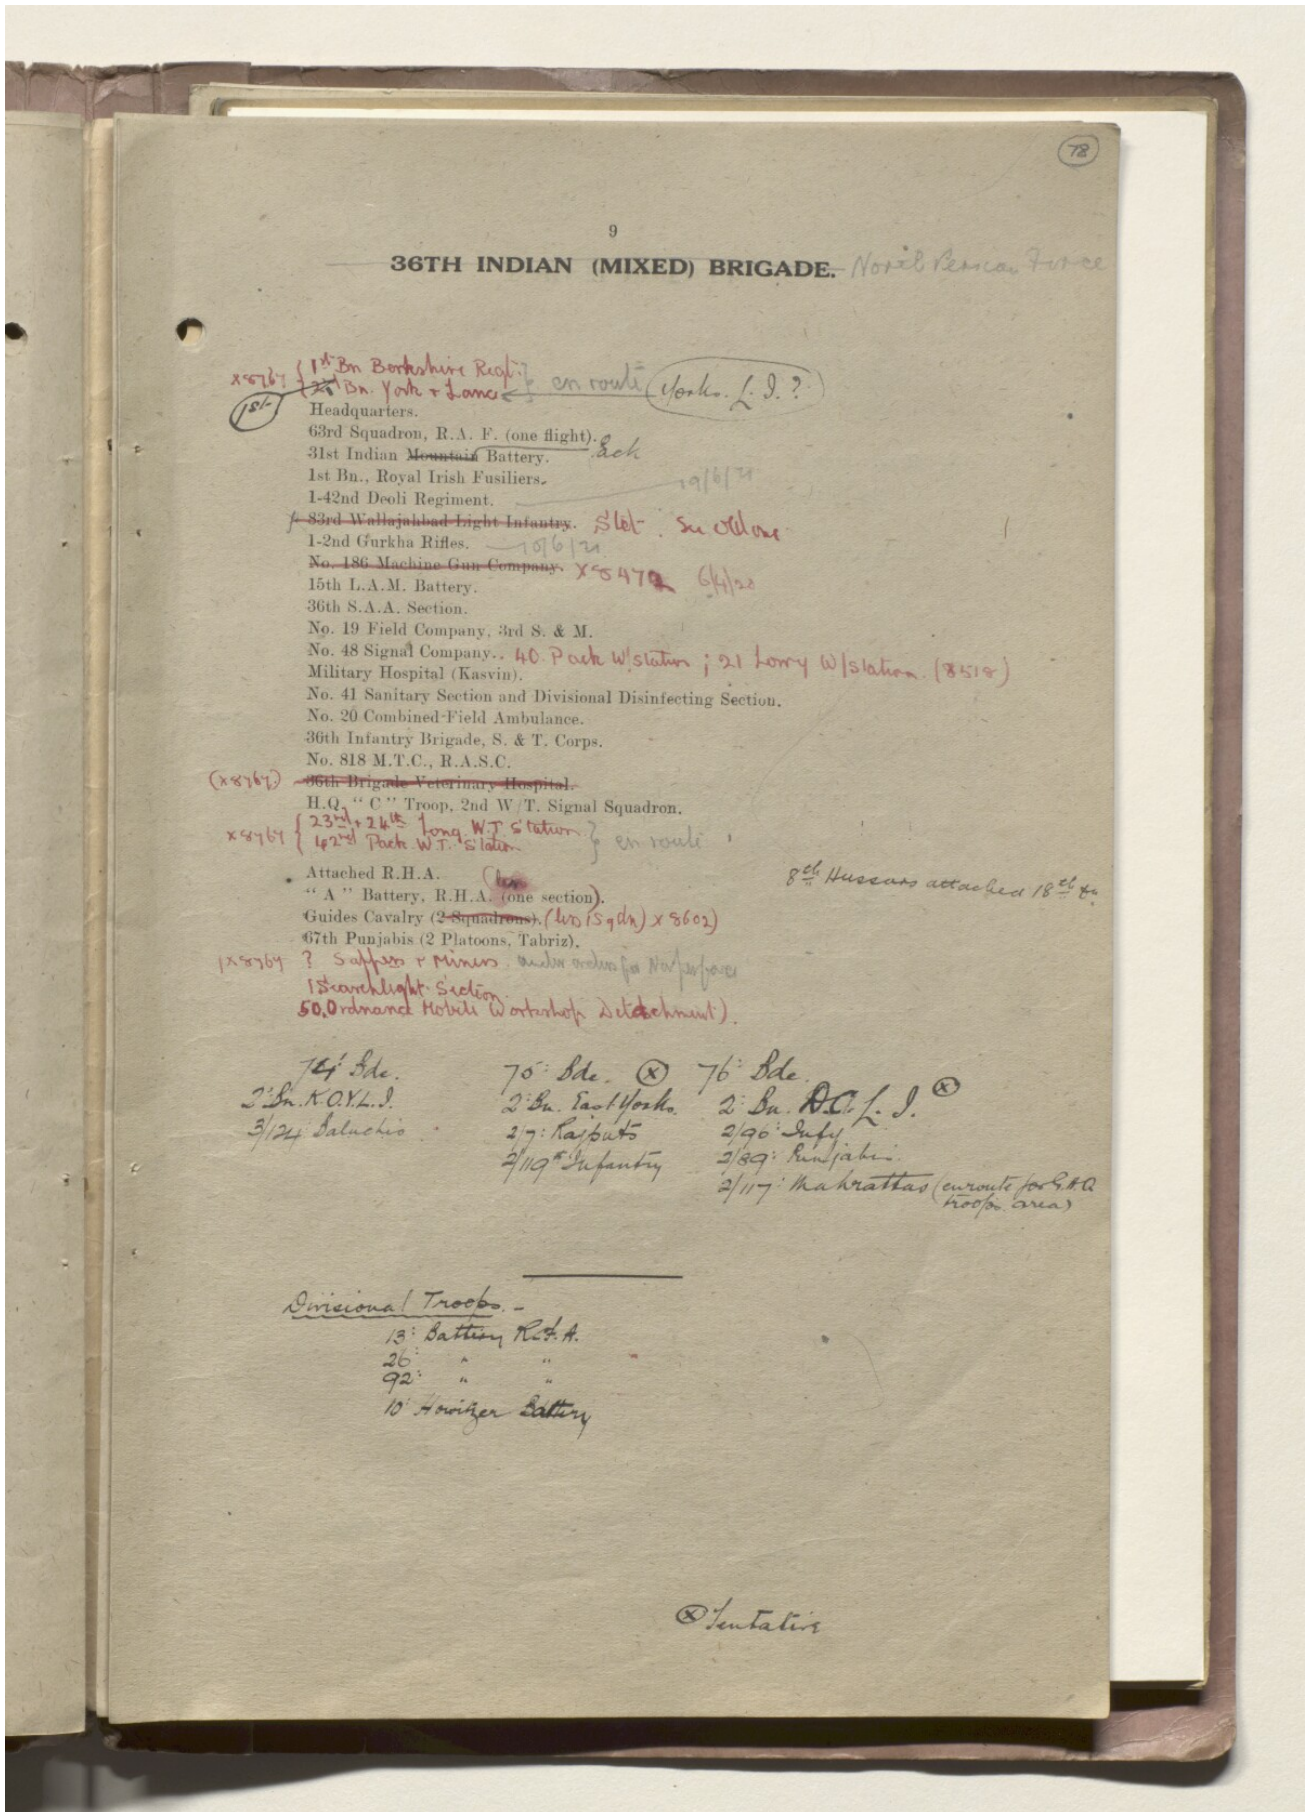 78
9
36TH INDIAN (MIXED) BRIGADE. North Persian Force
x8767 { 1st Bn Berkshire Regt. } en route Yorks. L. I. ?
1st Bn. York + Lancs
Headquarters.
63rd Squadron, R.A. F. (one flight).
31st Indian Mountain Battery. Pack
1st Bn., Royal Irish Fusiliers.
1-42nd Deoli Regiment. 19/6/21
83rd Wallajahbad Light Infantry. See
1-2nd Gurkha Rifles. 10/6/21
No. 186 Machine Gun Company. x8472 6/4/20
15th L.A.M. Battery.
36th S.A.A. Section.
No. 19 Field Company, 3rd S. & M.
No. 48 Signal Company. 40 Pack W/station ; 21 Lorry W/Station. (8518)
Military Hospital (Kasvin).
No. 41 Sanitary Section and Divisional Disinfecting Section.
No. 20 Combined Field Ambulance.
36th Infantry Brigade, S. & T. Corps.
No. 818 M.T.C., R.A.S.C.
(x8767) 36th Brigade Veterinary Hospital.
H.Q. "C" Troop, 2nd W/T. Signal Squadron.
x8767 { 23rd + 24th Long W.T. Station } en route
42nd Pack W.T. Station
Attached R.H.A.
"A" Battery, R.H.A. (one section).
8th Hussars attached 18th
Guides Cavalry (2 Squadrons). (less 1 Sqdn) x8602)
67th Punjabis (2 Platoons, Tabriz).
x8767 ? Sappers + Miners. under orders for Norperforce
1 Searchlight Section
50. Ordnance Mobile Workshop Detachment).
74: Bde. 75: Bde. (x) 76: Bde.
2: Bn. K.O.Y.L.I. 2: Bn. East Yorks. 2: Bn. D.C.L.I. (x)
3/124: Baluchis 2/7: Rajputs 2/96: Infy
2/119th Infantry 2/89: Punjabis.
2/117: Mahrattas (enroute for G.H.Q
troops area)
Divisional Troops. -
13: Battery R.F.A.
26: " "
92: " "
10: Howitzer Battery
(x) Tentative